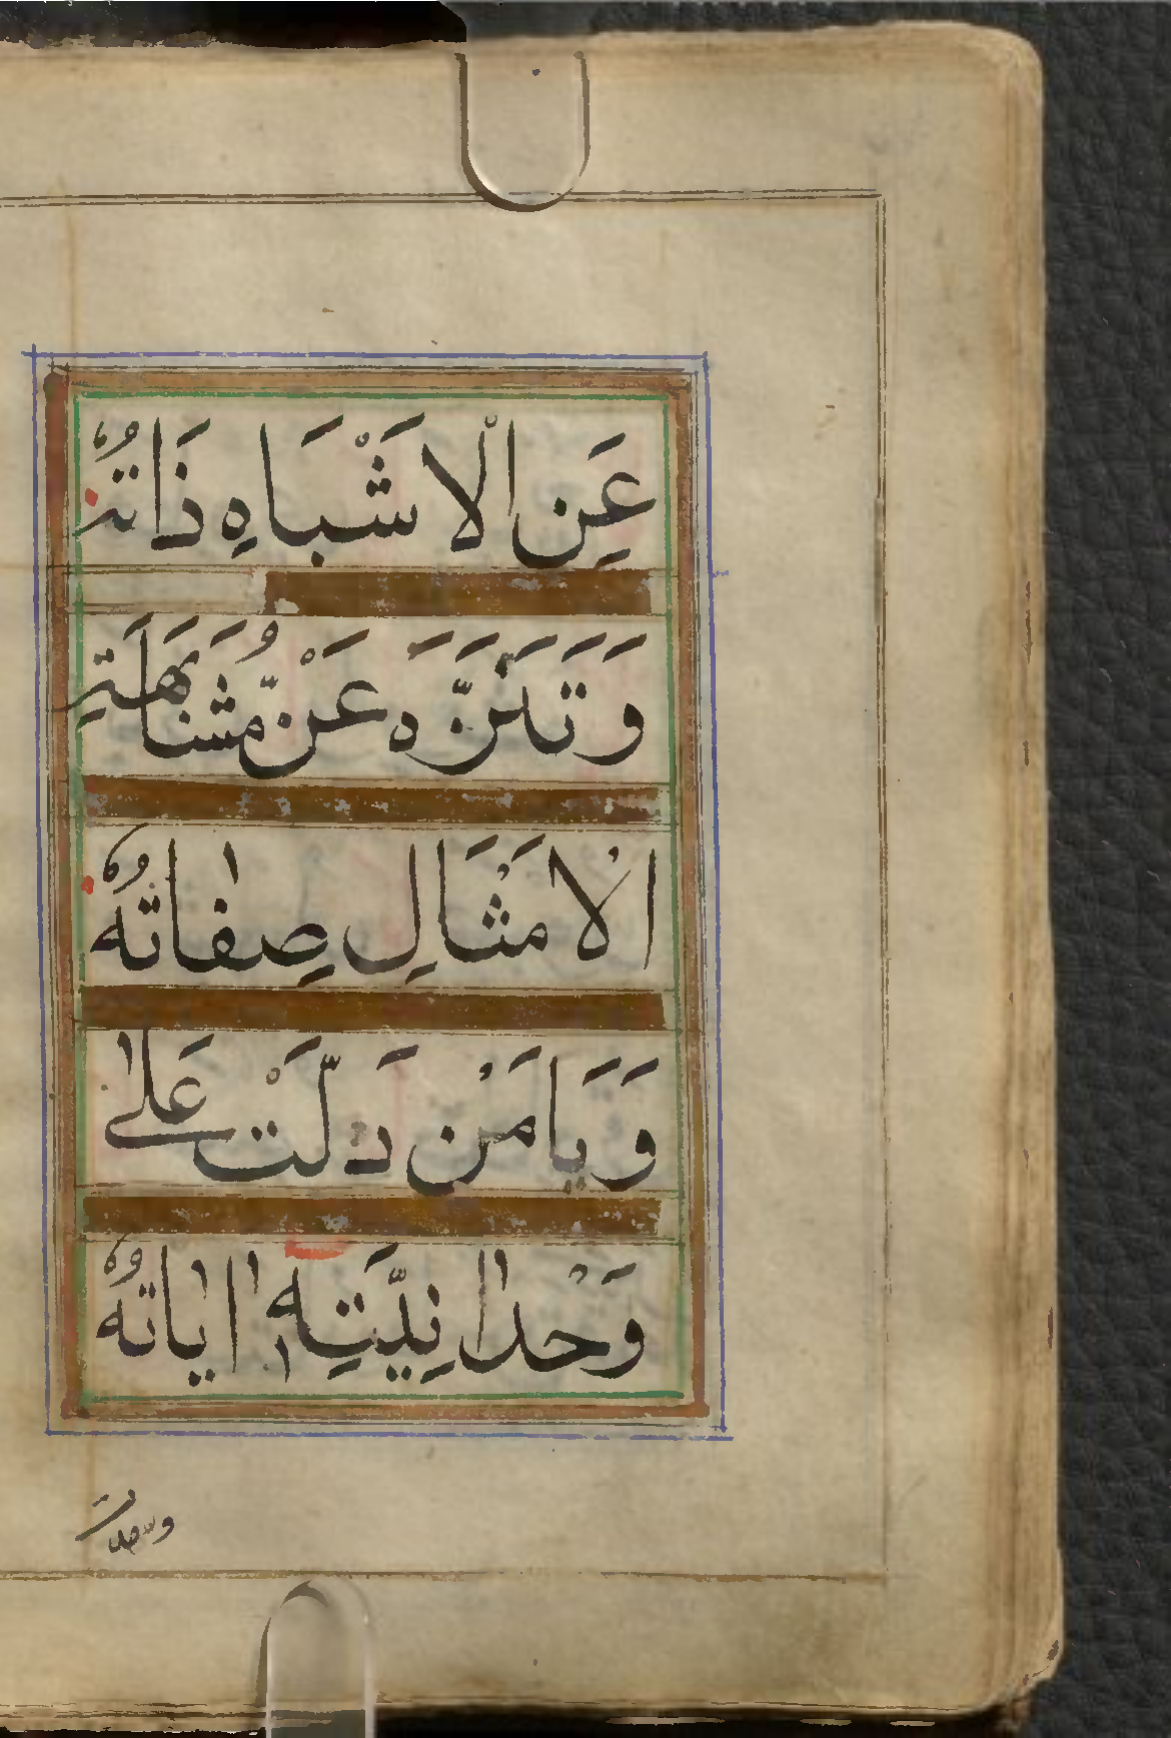 عَنِ الْاَشْبَاهِ ذَاتُهُ
وَتَنَزَّهَ عَنْ مُّشَابَهَتِ
الْاَمْثَالِ صِفَاتُهُ
وَيَامَنْ دَلَّتْ عَلٰى
وَحْدَانِيَّتِهٖ اٰيَاتُهُ